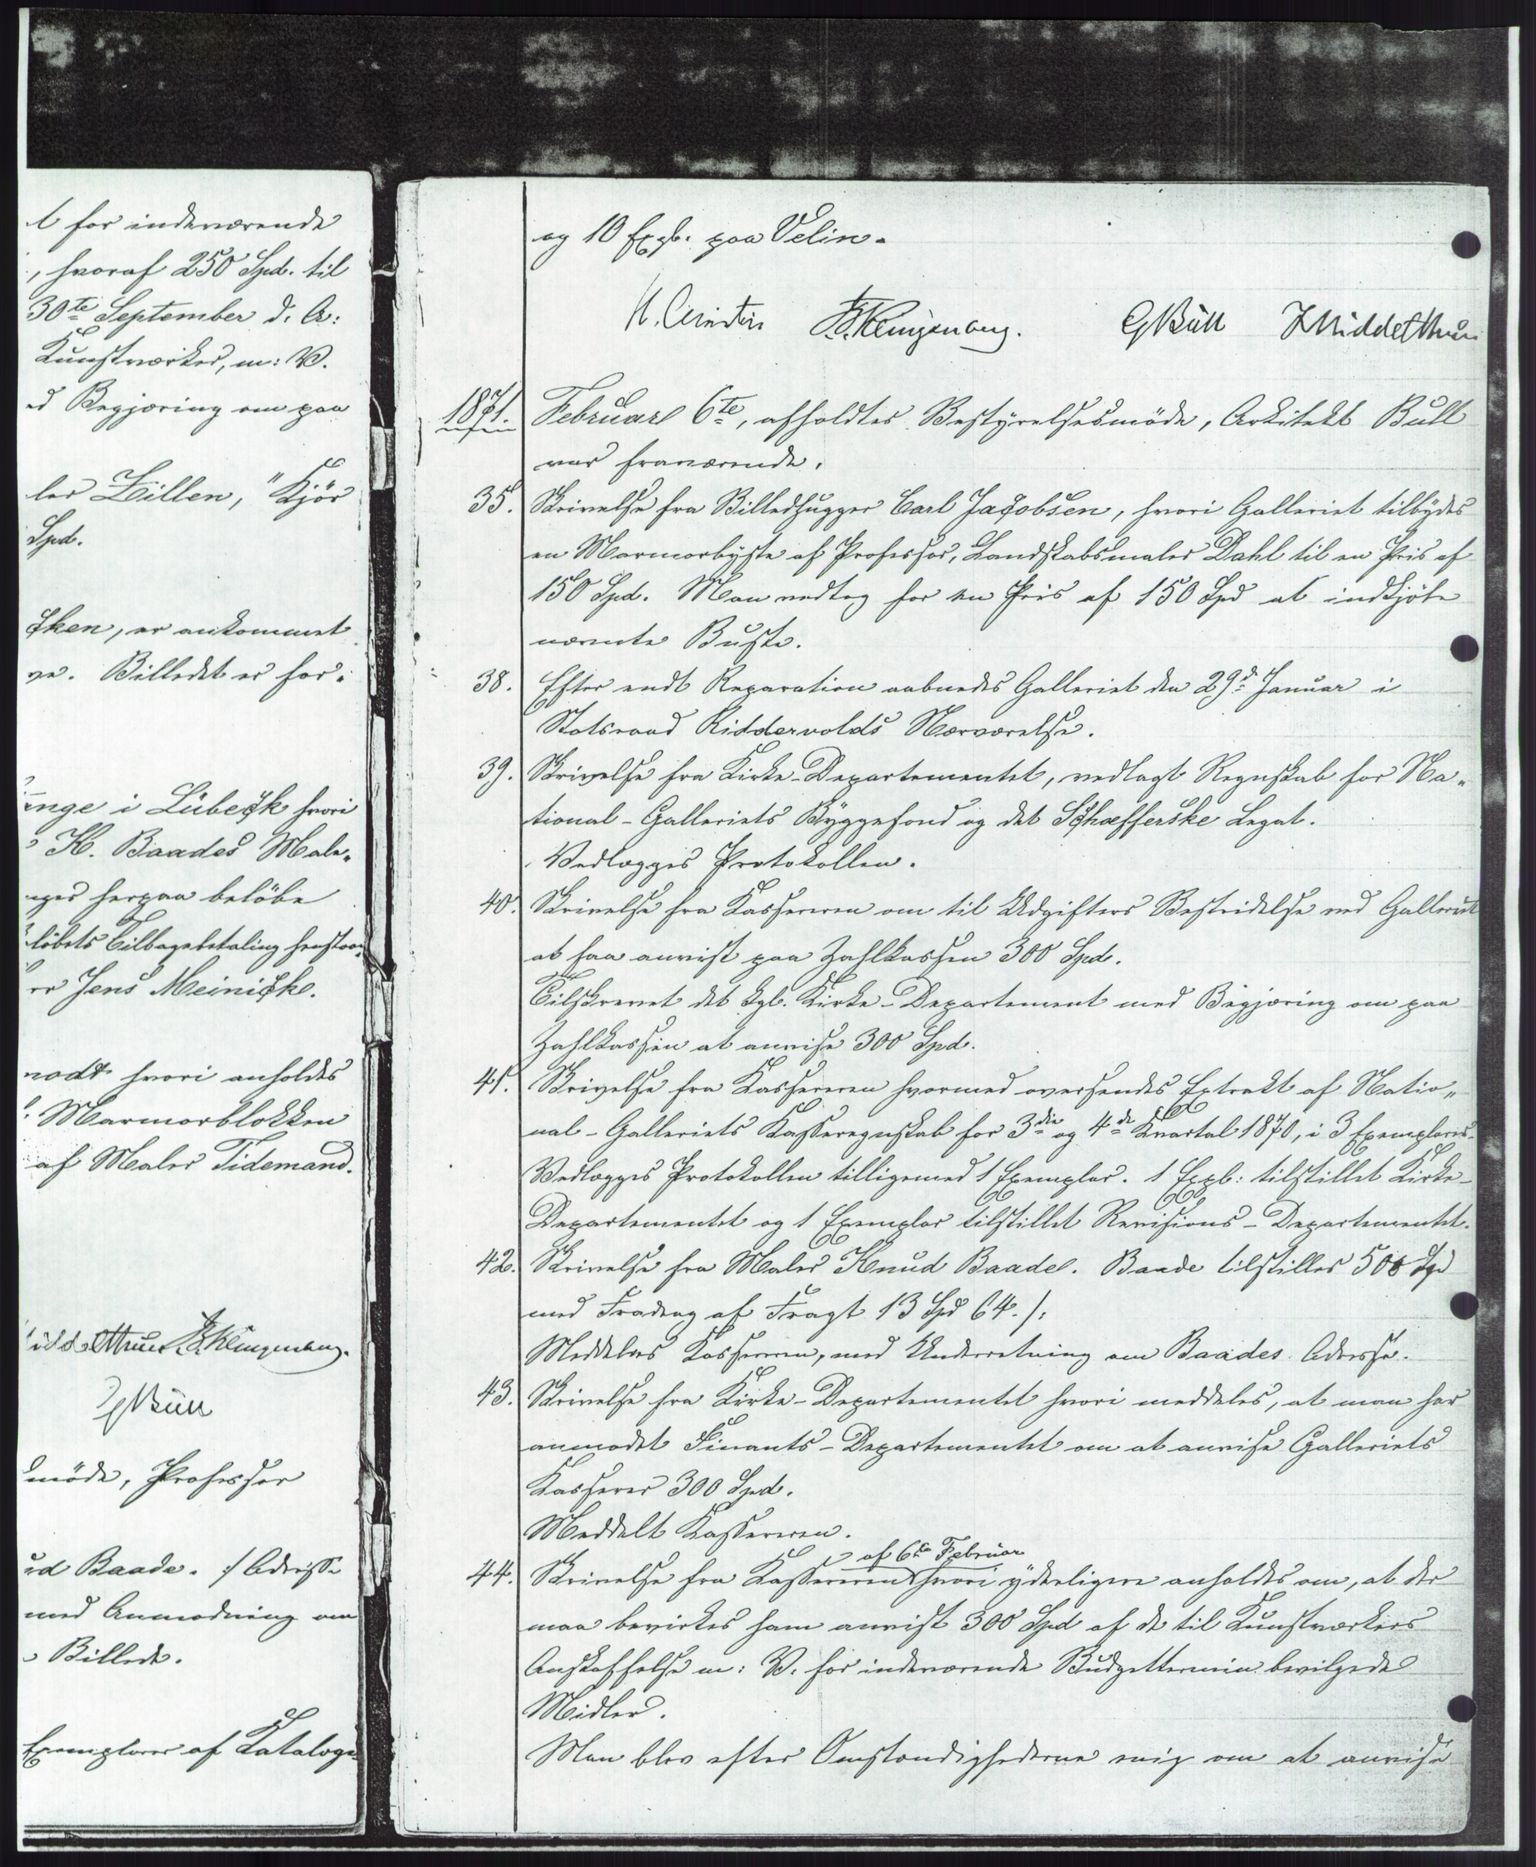 t for indeværende
, hvoraf 250 Spd. til
30te September d. A:
Kunstværker, m: V.
ed Begjæring om paa
ler Zillen, "Kjör
Spd.
cken, er ankommet
ve. Billedet er for.
inge i Lübeck hvori
K. Baades Male„
nges herpaa belöbe
löbets Tilbagebetaling henstaa„
rr Jens Meinicke.
modt hvori anholdes
Marmorblokken
af Maler Tidemand.
iddelthun F. Klingenberg.
G Bull
smöde, Professor
ud Baade. :/ Adresse
med Anmodning om
Billede.
Exemplarer af Kataloge
og 10 Expl. paa Velin.
F. Klingenberg. G Bull J Middelthun
1871. Februar 6te, afholdtes Bestyrelsesmöde, Arkitekt Bull
var fraværende.
35. Skrivelse fra Billedhugger Carl Jacobsen, hvori Galleriet tilbydes
en Marmorbyste af Professor, Landskabsmaler Dahl til en Pris af
150 Spd. Man vedtog for en Pris af 150 Spd at indkjöbe
nævnte Buste.
38. Efter endt Reparation aabnedes Galleriet den 29d Januar i
Statsraad Riddervolds Nærværelse.
39. Skrivelse fra Kirke-Departementet, vedlagt Regnskab for Na„
tional-Galleriets Byggefond og det Schæfferske Legat.
Vedlægges Protokollen.
40. Skrivelse fra Kassereren om til Udgifters Bestridelse ved Galleriet
at faa anvist paa Zahlkassen 300 Spd.
Tilskrevet det kgl. Kirke-Departement med Begjæring om paa
Zahlkassen at anvise 300 Spd.
41. Skrivelse fra Kassereren hvormed oversendes Extrakt af Natio„
nal-Galleriets Kasseregnskab for 3die og 4de Kvartal 1870, i 3 Exemplarer.
Vedlægges Protokollen tilligemed 1 Exemplar. 1 Expl: tilstillet Kirke-
Departementet og 1 Exemplar tilstillet Revisions-Departementet.
42. Skrivelse fra Maler Knud Baade. Baade tilstilles 500 Spd
med Fradrag af Fragt 13 Spd 64./:
Meddeles Kassereren, med Underretning om Baades Adresse.
43. Skrivelse fra Kirke-Departementet hvori meddeles, at man har
anmodet Finants-Departementet om at anvise Galleriets
Kasserer 300 Spd.
Meddelt Kassereren.
af 6te Februar
44. Skrivelse fra Kassereren hvori yderligere anholdes om, at der
maa bevirkes ham anvist 300 Spd af de til Kunstværkers
Anskaffelse m: V. for indeværende Budgettermin bevilgede
Midler.
Man blev efter Omstændighederne enig om at anvise